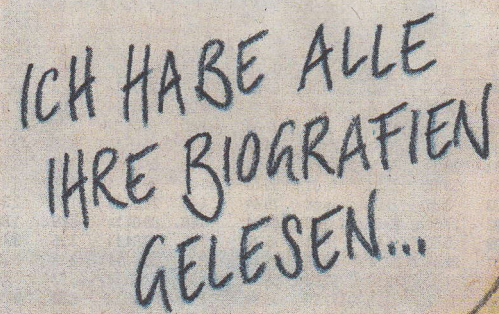 ICH HABE ALLE
IHRE BIOGRAFIEN
GELESEN...